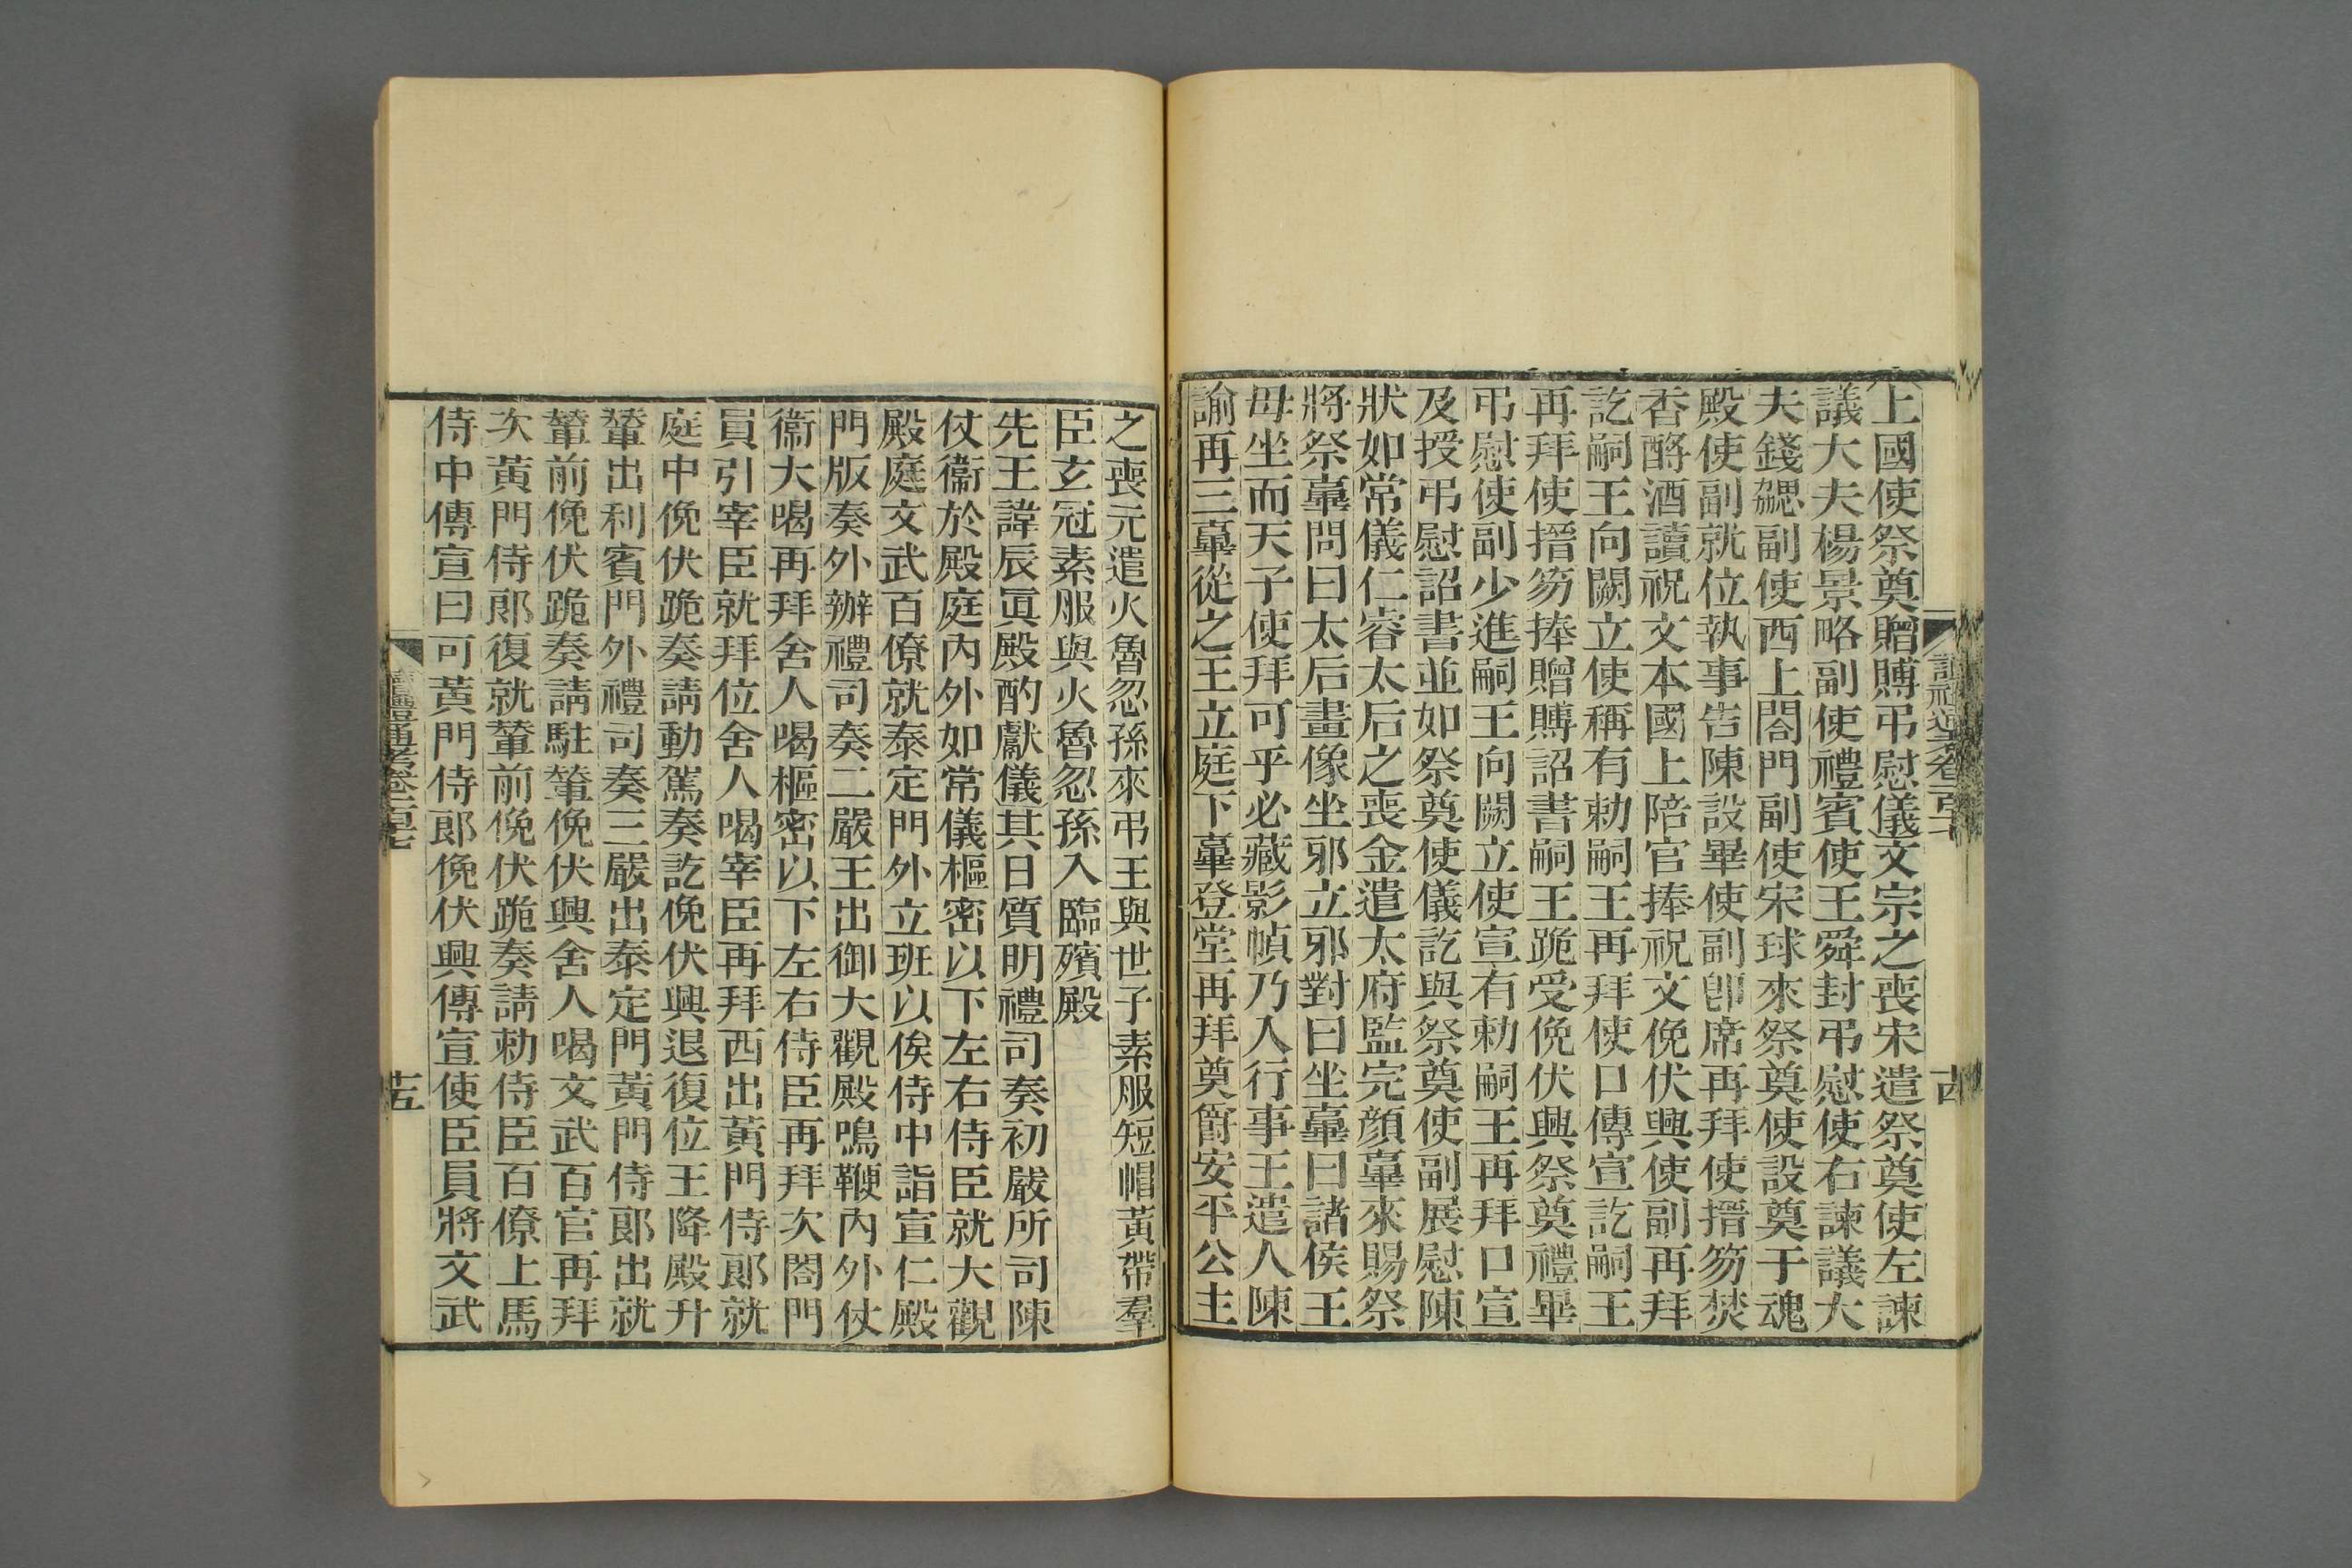 上國使祭奠贈賻弔慰儀文宗之喪宋遣祭奠使左諫
議大夫楊景略副使禮賓使王舜封弔慰使右諫議大
夫錢勰副使西上閤門副使宋球來祭奠使設奠于魂
殿使副就位執事告陳設畢使副卽席再拜使搢笏焚
香酹酒讀祝文本國上陪官捧祝文俛伏興使副再拜
訖嗣王向闕立使稱有勅嗣王再拜使口傳宣訖嗣王
再拜使搢笏捧贈賻詔書嗣王跪受俛伏興祭奠禮畢
弔慰使副少進嗣王向闕立使宣有勅嗣王再拜口宣
及授弔慰詔書並如祭奠使儀訖與祭奠使副展慰陳
狀如常儀仁睿太后之喪金遣太府監完顔臯來賜祭
將祭臯問曰太后畫像坐邪立邪對曰坐臯曰諸侯王
母坐而天子使拜可乎必藏影幀乃入行事王遣人陳
諭再三臯從之王立庭下臯登堂再拜奠爵安平公主
之喪元遣火魯忽孫來弔王與世子素服短帽黃帶羣
臣玄冠素服與火魯忽孫入臨殯殿
先王諱辰眞殿酌獻儀其日質明禮司奏初嚴所司陳
仗衞於殿庭內外如常儀樞密以下左右侍臣就大觀
殿庭文武百僚就泰定門外立班以俟侍中詣宣仁殿
門版奏外辦禮司奏二嚴王出御大觀殿鳴鞭內外仗
衞大喝再拜舍人喝樞密以下左右侍臣再拜次閤門
員引宰臣就拜位舍人喝宰臣再拜西出黃門侍郞就
庭中俛伏跪奏請動駕奏訖俛伏興退復位王降殿升
輦出利賓門外禮司奏三嚴出泰定門黃門侍郞出就
輦前俛伏跪奏請駐輦俛伏興舍人喝文武百官再拜
次黃門侍郞復就輦前俛伏跪奏請勅侍臣百僚上馬
侍中傳宣曰可黃門侍郞俛伏興傳宣使臣員將文武